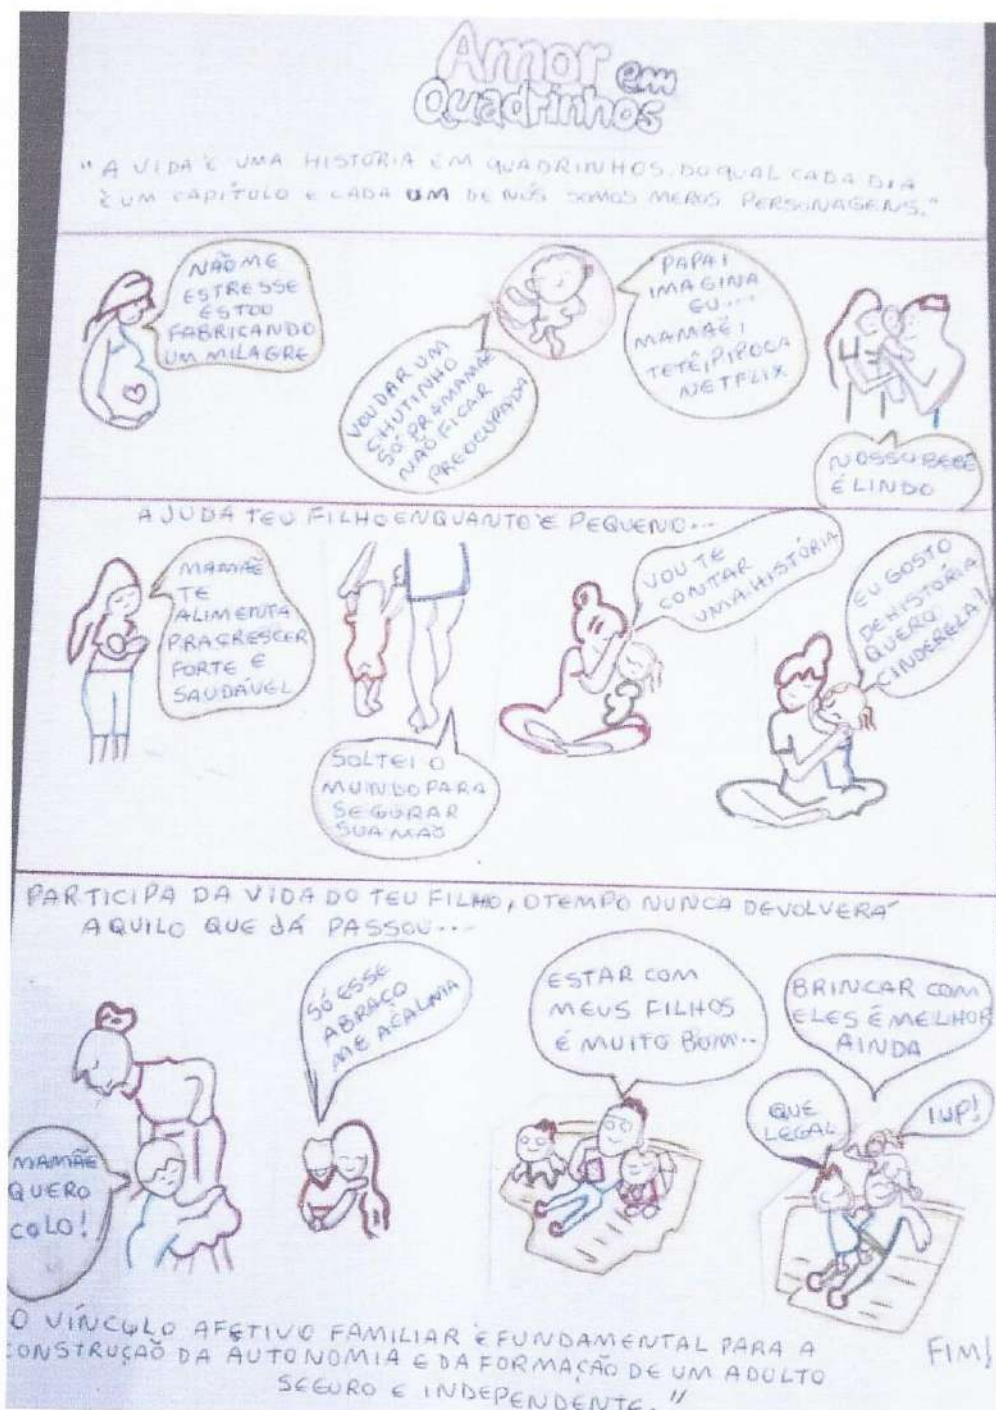 Amor em
Quadrinhos
"A VIDA É UMA HISTÓRIA EM QUADRINHOS, DO QUAL CADA DIA
É UM CAPÍTULO E CADA UM DE NÓS SOMOS MEROS PERSONAGENS."
NÃO ME
ESTRESSE
ESTOU
FABRICANDO
UM MILAGRE
VOU DAR UM
CHUTINHO
SÓ PRA MAMÃE
NÃO FICAR
PREOCUPADA
PAPAI
IMAGINA
EU...
MAMÃE,
TETÊ, PIPOCA
NETFLIX
NOSSO BEBÊ
É LINDO
AJUDA TEU FILHO ENQUANTO É PEQUENO...
MAMÃE
TE
ALIMENTA
PRA CRESCER
FORTE E
SAUDÁVEL
SOLTEI O
MUNDO PARA
SEGURAR
SUA MÃO
VOU TE
CONTAR
UMA HISTÓRIA
EU GOSTO
DE HISTÓRIA
QUERO
CINDERELA!
PARTICIPA DA VIDA DO TEU FILHO, O TEMPO NUNCA DEVOLVERÁ
AQUILO QUE JÁ PASSOU...
MAMÃE
QUERO
COLO!
SÓ ESSE
ABRAÇO
ME ACALMA
ESTAR COM
MEUS FILHOS
É MUITO BOM...
BRINCAR COM
ELES É MELHOR
AINDA
QUE
LEGAL
IUP!
O VÍNCULO AFETIVO FAMILIAR É FUNDAMENTAL PARA A
CONSTRUÇÃO DA AUTONOMIA E DA FORMAÇÃO DE UM ADULTO
SEGURO E INDEPENDENTE."
FIM!